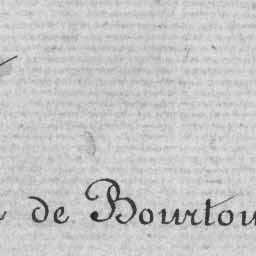 de Bourtou